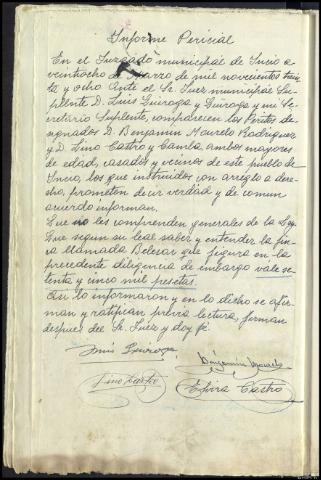 Informe Pericial
En el Juzgado municipal de Incio a
veintiocho de Marzo de mil novecientos trein
ta y ocho Ante el Sr Juez municipal Su-
plente D. Luis Quiroga y Quiroga y mi Se-
cretario Suplente, comparecen los Peritos de-
signados D. Benjamin Mourelo Rodriguez
y D. Lino Castro y Camba, ambos mayores
de edad, casados y vecinos de este pueblo de
Incio, los que instruidos con arreglo a dere-
cho, prometen decir verdad y de comun
acuerdo informan.
Que no les comprenden generales de la Ley.
Que segun su leal saber y entender la fin-
ca llamada Belesar que figura en la
precedente diligencia de embargo vale se-
tenta y cinco mil pesetas.
Asi lo informaron y en lo dicho se afir-
man y ratifican previa lectura, firman
despues del Sr. Juez y doy fé.
Luis Quiroga
Benjamin Mourelo
Lino Castro
Elvira Castro